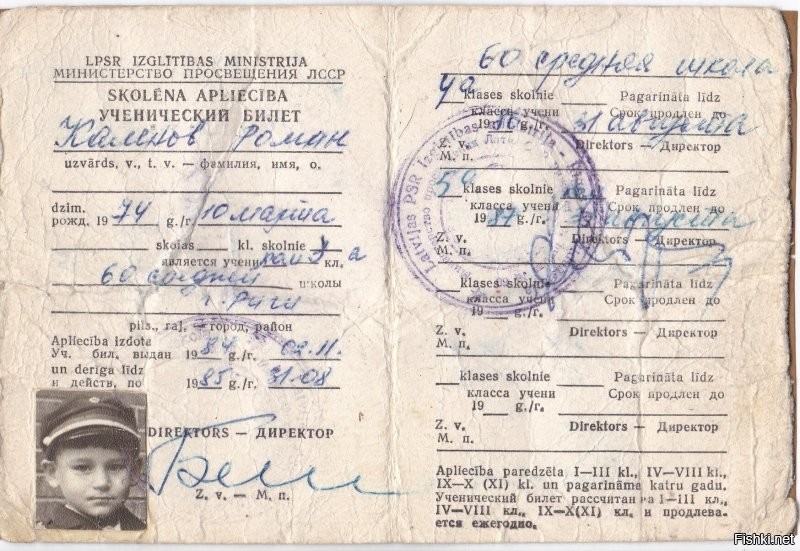 LPSR IZGLĪTĪBAS MINISTRIJA
МИНИСТЕРСТВО ПРОСВЕЩЕНИЯ ЛССР
SKOLĒNA APLIECĪBA
УЧЕНИЧЕСКИЙ БИЛЕТ
Каленов Роман
uzvārds, v., t. v. — фамилия, имя, о.
dzim.
рожд. 1974 g./г. 10 марта
skolas kl. skolnie
является учени кл. а
60 средней школы
г. Риги
pils., raj. — город, район
Apliecība izdota
Уч. бил. выдан 1984 g./г. 02.11.
un derīga līdz
и действ. по 1985 g./г. 31.08
DIREKTORS — ДИРЕКТОР
Z. v. — М. п.
60 средняя школа
4а klases skolnie Pagarināta līdz
класса учени Срок продлен до
19 g./г. 31 августа
Z. v. Directors — Директор
М. п.
5а klases skolnie Pagarināta līdz
класса учени Срок продлен до
19 g./г. августа
Z. v. Directors — Директор
М. п.
Latvijas PSR Izglītības
klases skolnie Pagarināta līdz
класса учени Срок продлен до
19 g./г.
Z. v. Direktors — Директор
М. п.
klases skolnie Pagarināta līdz
класса учени Срок продлен до
19 g./г.
Z. v. Direktors — Директор
М. п.
Apliecība paredzēta I—III kl., IV—VIII kl.,
IX—X (XI) kl. un pagarināma katru gadu.
Ученический билет рассчитан на I—III кл.,
IV—VIII кл., IX—X(XI) кл. и продлева-
ется ежегодно.
Fishki.net